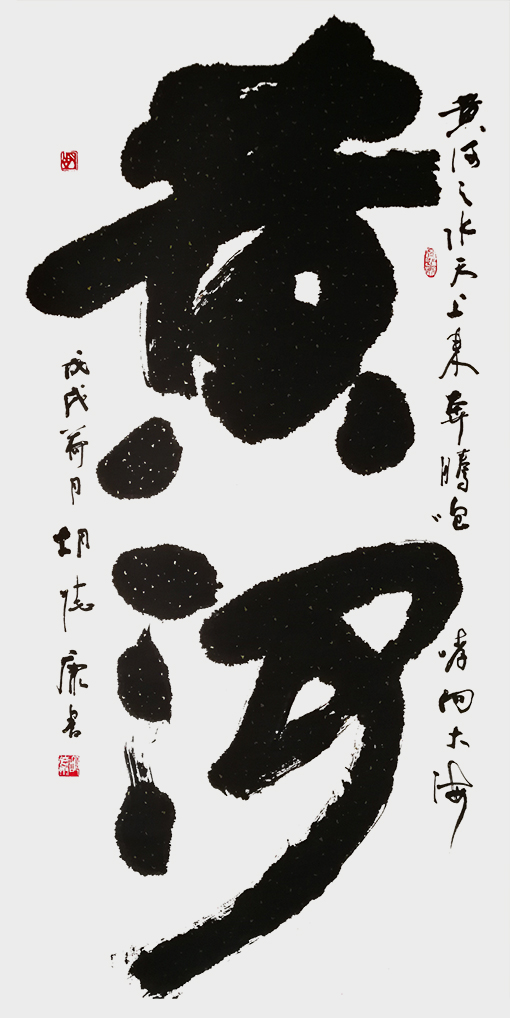 黄河之水天上来奔腾咆哮向大海
黄河
戊戌荷月胡誌康书